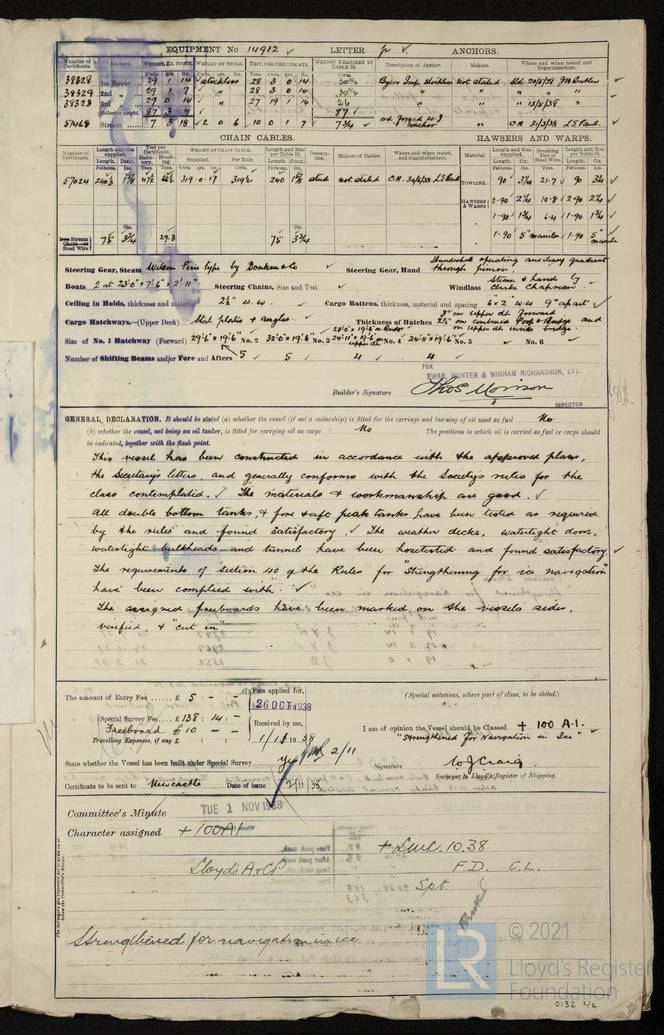 EQUIPMENT No 14912 LETTER p ANCHORS.
Number of Certificate. Anchors. WEIGHT, EX. STOCK. WEIGHT OF STOCK. TEST, PER CERTIFICATE. WEIGHT REQUIRED BY TABLE 53. Description of Anchor. Makers. Where and when tested and Superintendent.
38328 1st. Bower 29 1 14 Stockless 28 3 0 14 30½ Byers Imp. Stockless Not stated Sld 20/5/38
38329 2nd " 29 1 7 " 28 3 0 14 30½ " " "
38323 3rd " 29 0 14 " 27 19 1 14 26 " " 13/5/38 "
Collective weight. 87 3 7 87
Stream 7 3 18 2 0 6 10 0 1 7 7¾ ord Forged W.I anchor " C.H 31/3/38 L.E Paul.
CHAIN CABLES. HAWSERS AND WARPS.
Number of Certificate. Length and size supplied. Test per Certificate. WEIGHT OF CHAIN CABLE. Length and Size per Table 53. Description. Makers of Cables. Where and when tested, and Superintendent. Material Length and size supplied. Breaking Test of Steel Wire. Length and Size per Table 53.
319·0·17 319½ 240 stud not stated
TOWLINE 90 3¾ 21·7 90 3¾
HAWSERS & WARPS 2-90 2¼ 10·8 2-90 2¼
1-90 1¾ 6·4 1-90 1¾
75 3¾ 29.3 75 3¾ 1-90 5" manilla 1-90 5" manilla
Steering Gear, Steam Wilson Pirie type by Donkin & Co Steering Gear, Hand Handwheel operating auxiliary quadrant through pinion.
Boats 2 at 23'0" × 7'6" × 2'11" Steering Chains, Size and Test Windlass Steam & hand by Clarke Chapman.
Ceiling in Holds, thickness and material 2½" W.W. Cargo Battens, thickness, material and spacing 6" × 2" W.W 9" apart
Cargo Hatchways.—(Upper Deck) Steel plates & angles Thickness of Hatches 3" on upper dk forward 2½" on combined Poop & Bridge and on upper dk inside bridge.
Size of No. 1 Hatchway (Forward) 29'6" × 19'6" No. 2 32'6" × 19'6" No. 3 No. 4 24'11" × 19'6" No. 5 No. 6
Number of Shifting Beams and/or Fore and Afters 5 5 4 4
FOR
SWAN, HUNTER & WIGHAM RICHARDSON, LTD.
Builder's Signature Thos Morison
DIRECTOR
GENERAL DECLARATION. It should be stated (a) whether the vessel (if not a motorship) is fitted for the carriage and burning of oil used as fuel No
(b) whether the vessel, not being an oil tanker, is fitted for carrying oil as cargo No The positions in which oil is carried as fuel or cargo should
be indicated, together with the flash point.
This vessel has been constructed in accordance with the approved plans,
the Secretary's letters, and generally conforms with the Society's rules for the
class contemplated. The materials & workmanship are good.
All double bottom tanks, & fore & aft peak tanks have been tested as required
by the rules and found satisfactory. The weather decks, watertight doors,
watertight bulkheads and tunnel have been hosetested and found satisfactory.
The requirements of Section 40 of the Rules for "Strengthening for ice navigation"
have been complied with.
The assigned freeboards have been marked on the vessels side,
verified, & "cut in"
The amount of Entry Fee ...... £ 5 : - - Fees applied for, (Special notations, where part of class, to be stated.)
26 OCT 1938
Special Survey Fee.... £138 : 14 : - Received by me,
Freeboard £10 - - I am of opinion the Vessel should be Classed + 100 A.1.
Travelling Expenses, if any £ 1/11 1938 "Strengthened for Navigation in Ice"
State whether the Vessel has been built under Special Survey Yes 2/11 Signature W J Craig
Surveyor to Lloyd's Register of Shipping.
Certificate to be sent to Newcastle Date of issue 2/11/38
Committee's Minute TUE 1 NOV 1938
Character assigned + 100A1
+ LMC. 10.38
Lloyds A & CP F.D. C.L.
Spt.
Strengthened for navigation in ice
LR © 2021
Lloyd's Register
Foundation
0132 2/2